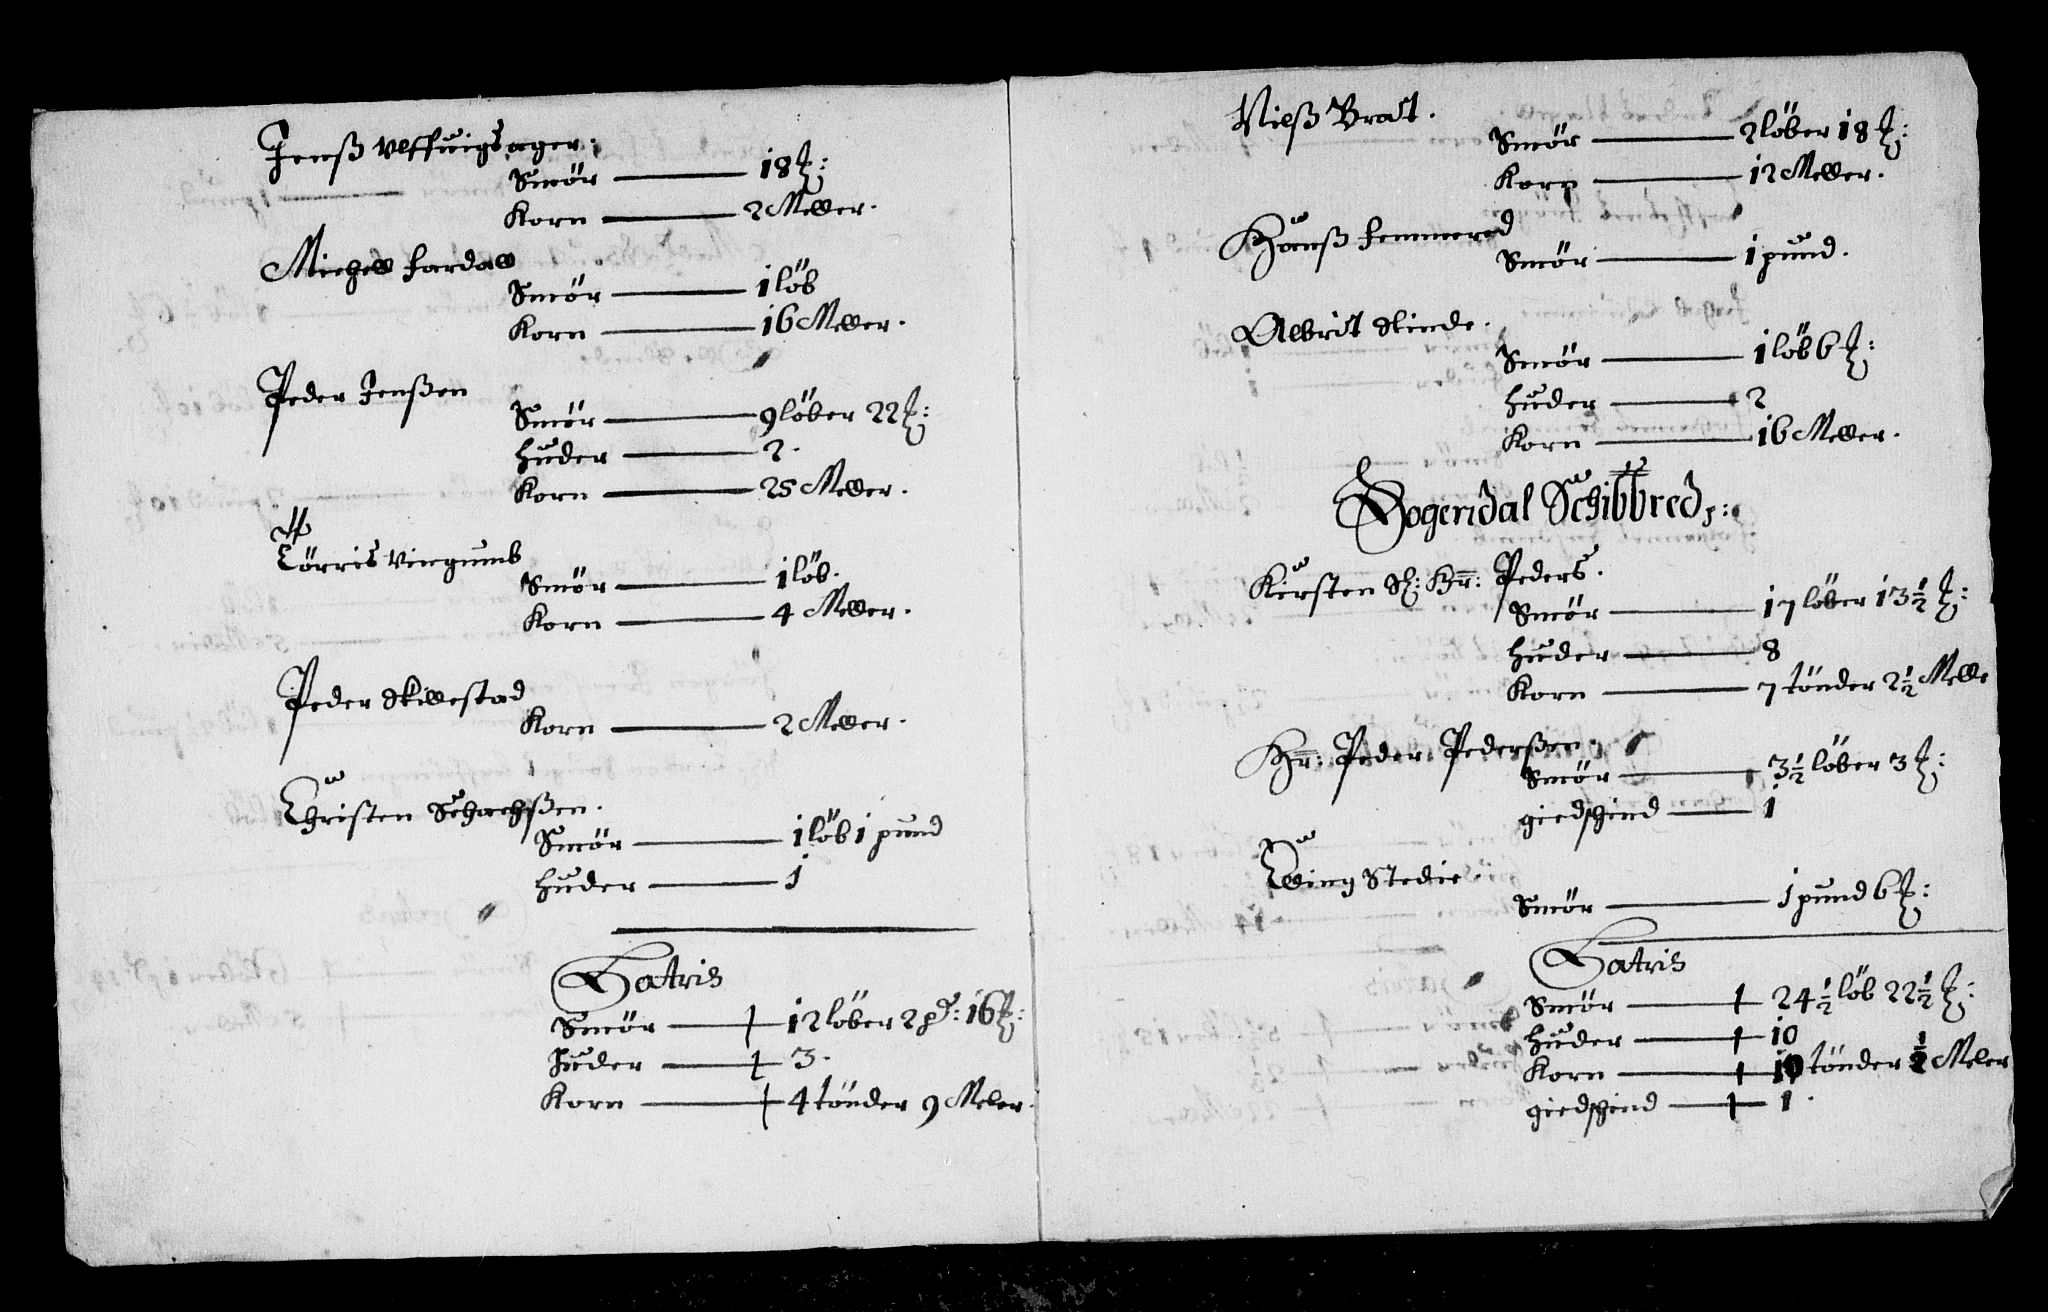 Jenß Ulffuigsager:
Smör — 18 ℔:
Korn — 2 Meller.
Michell Fardall
Smör — 1 löb
Korn — 16 Meller.
Peder Jenßen
Smör — 9 löber 22 ℔:
huder — 2.
Korn — 25 Meller.
Törris Viegumb
Smör — 1 löb.
Korn — 4 Meller.
Peder Skillestad
Korn — 2 Meller.
Christen Schachßen.
Smör — 1 löb 1 pund
huder — 1
Latris
Smör — 12 löber 2 pd: 16 ℔:
huder — 3.
Korn — 4 tönder 9 Meler.
Nielß Brat.
Smör — 2 löber 18 ℔:
Korn — 12 Meller.
Hanß Femmered
Smör — 1 pund.
Albrit Slinde.
Smör — 1 löb 6 ℔:
huder — 2
Korn — 16 Meller.
Sogendal Schibbred,:
Kirsten Sl: Hr: Peders.
Smör — 17 löber 13 ½ ℔:
huder — 8
Korn — 7 tönder 2 ½ Melle
Hr: Peder Pederßen.
Smör — 3 ½ löber 3 ℔:
giedschind — 1
Elling Stedie.
Smör — 1 pund 6 ℔:
Latris
Smör — 24 ½ löb 22 ½ ℔:
huder — 10
Korn — 10 tönder ½ Meler
giedschind — 1.